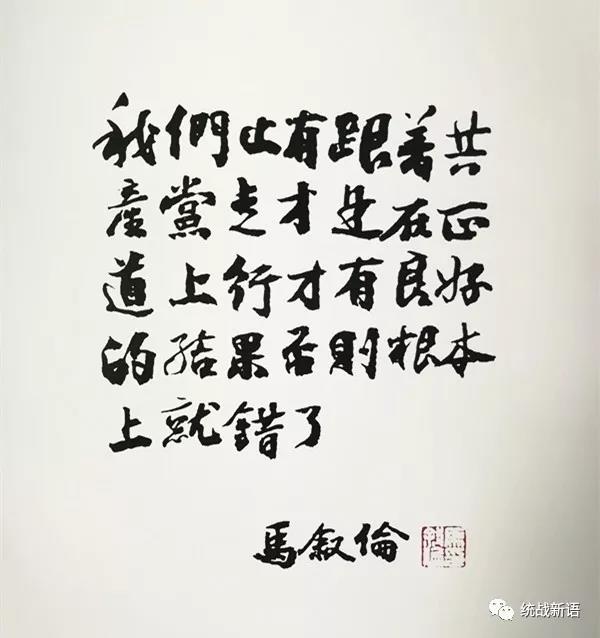 我們止有跟着共
產黨走才是在正
道上行才有良好
的結果否則根本
上就錯了
馬叙倫
统战新语